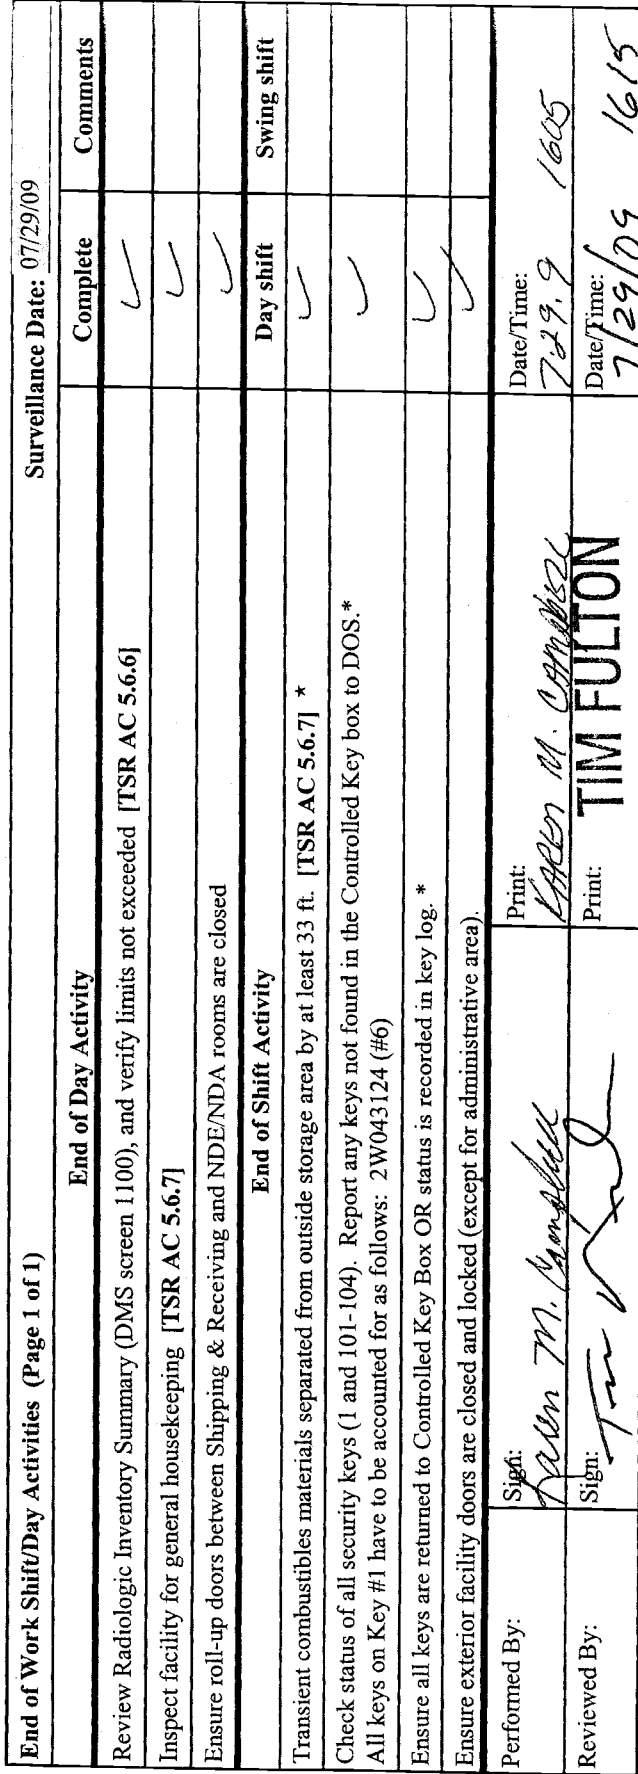 End of Work Shift/Day Activities (Page 1 of 1) Surveillance Date: 07/29/09
End of Day Activity Complete Comments
Review Radiologic Inventory Summary (DMS screen 1100), and verify limits not exceeded [TSR AC 5.6.6] ✓
Inspect facility for general housekeeping [TSR AC 5.6.7] ✓
Ensure roll-up doors between Shipping & Receiving and NDE/NDA rooms are closed ✓
End of Shift Activity Day shift Swing shift
Transient combustibles materials separated from outside storage area by at least 33 ft. [TSR AC 5.6.7] * ✓
Check status of all security keys (1 and 101-104). Report any keys not found in the Controlled Key box to DOS.* ✓
All keys on Key #1 have to be accounted for as follows: 2W043124 (#6)
Ensure all keys are returned to Controlled Key Box OR status is recorded in key log. * ✓
Ensure exterior facility doors are closed and locked (except for administrative area). ✓
Performed By: Sign: Print: Date/Time:
Karen M. Campbell KAREN M. CAMPBELL 7-29-9 1605
Reviewed By: Sign: Print: Date/Time:
TIM FULTON 7/29/09 1615